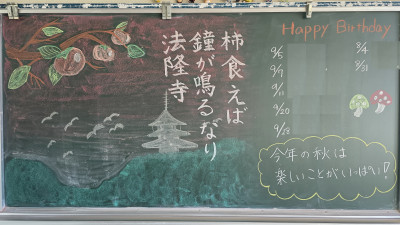 柿食えば
鐘が鳴るなり
法隆寺
Happy Birthday
9/5
9/9
9/11
9/20
9/28
8/4
8/31
今年の秋は
楽しいことがいっぱい!